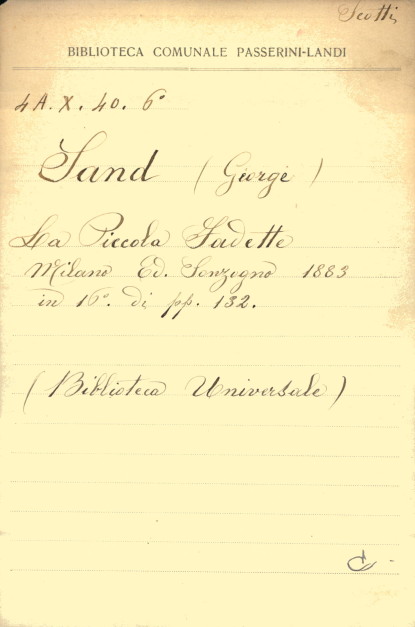 Scotti
BIBLIOTECA COMUNALE PASSERINI-LANDI
4A.X.40.6°
Sand (George)
La Piccola Fadette
Milano Ed. Sonzogno 1883
in 16°. di pp. 132.
(Biblioteca Universale)